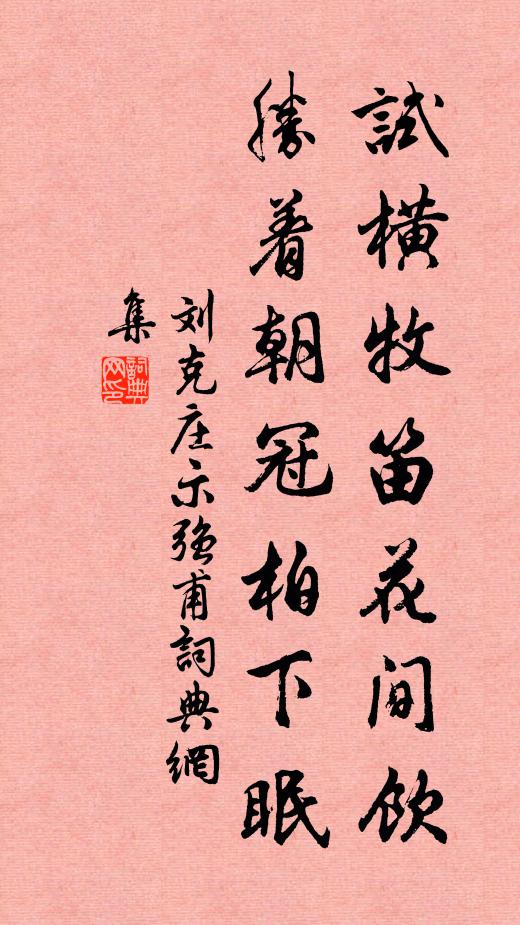 試橫牧笛花间飲
勝着朝冠柏下眠
刘克庄示强甫詞典網
集
詞典网印